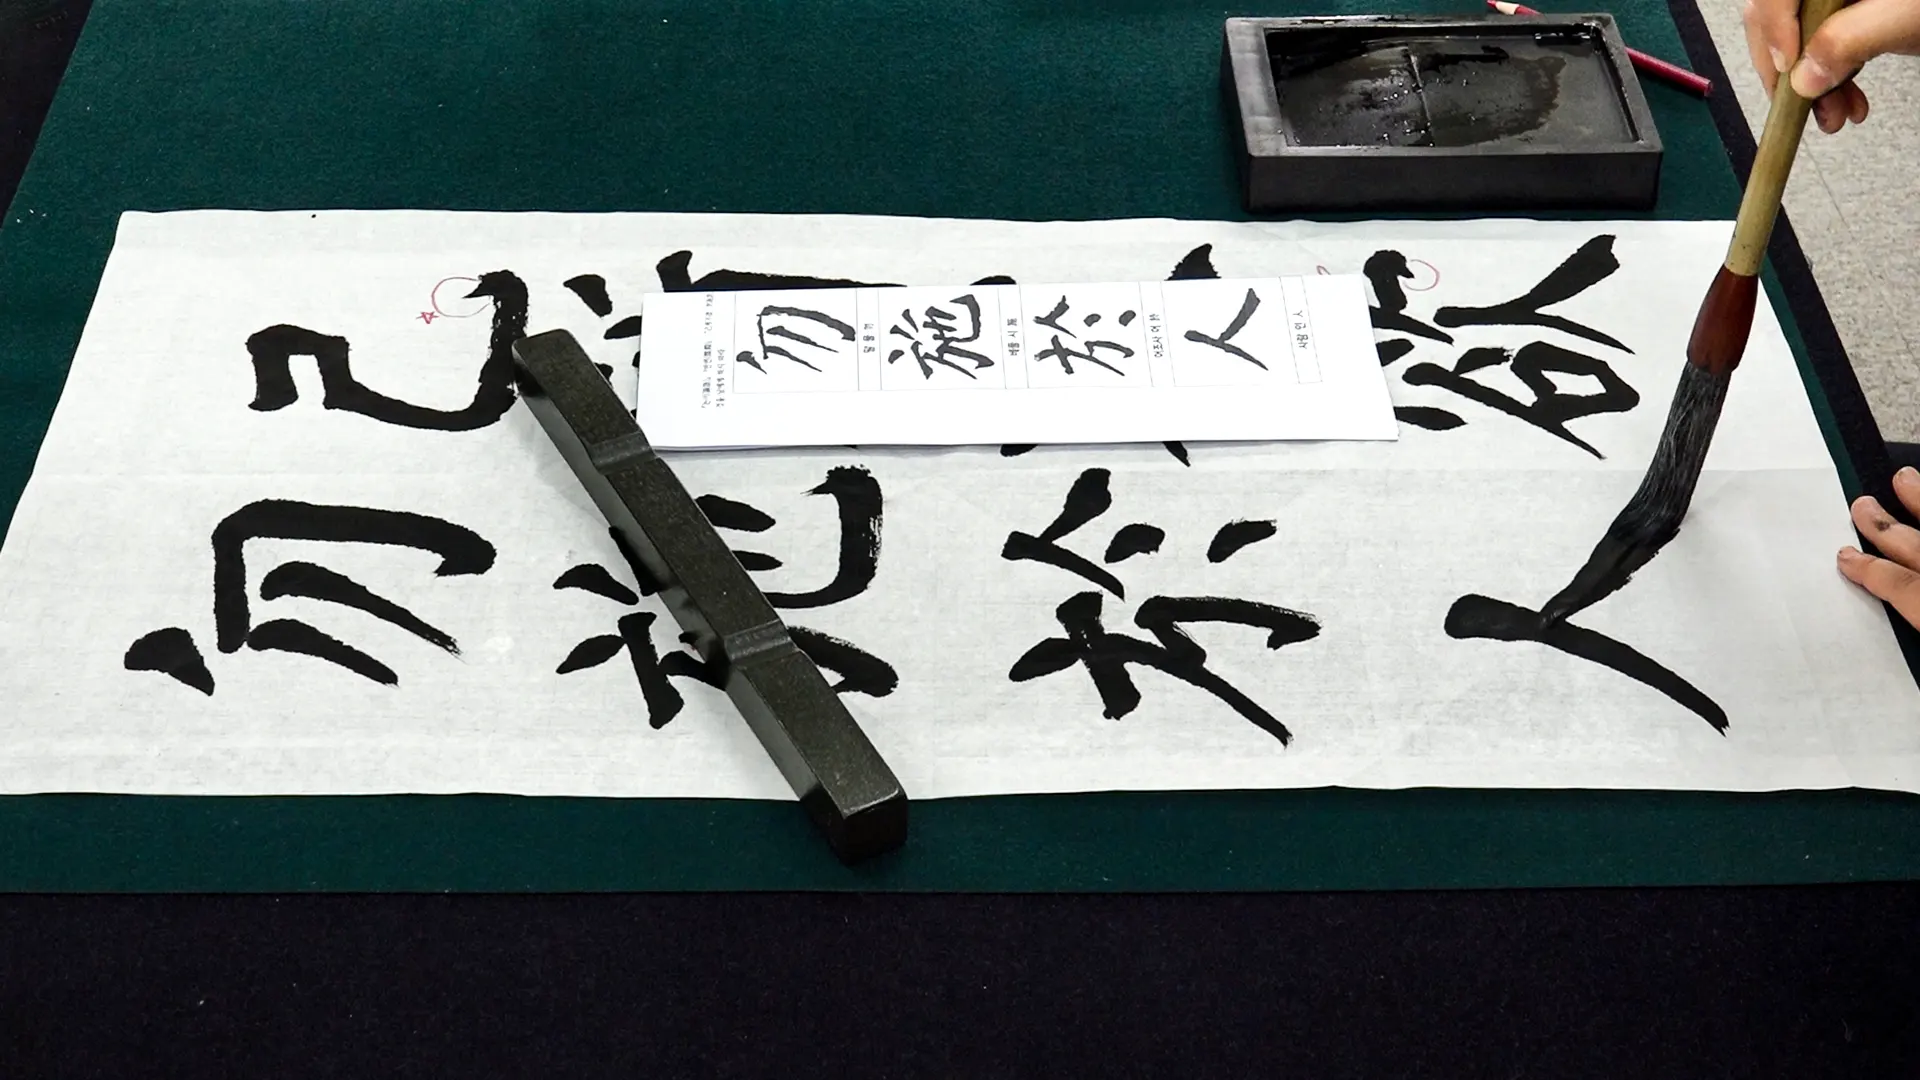 己欲
勿施於人
勿施於人
말 물 勿
베풀 시 施
어조사 어 於
사람 인 人